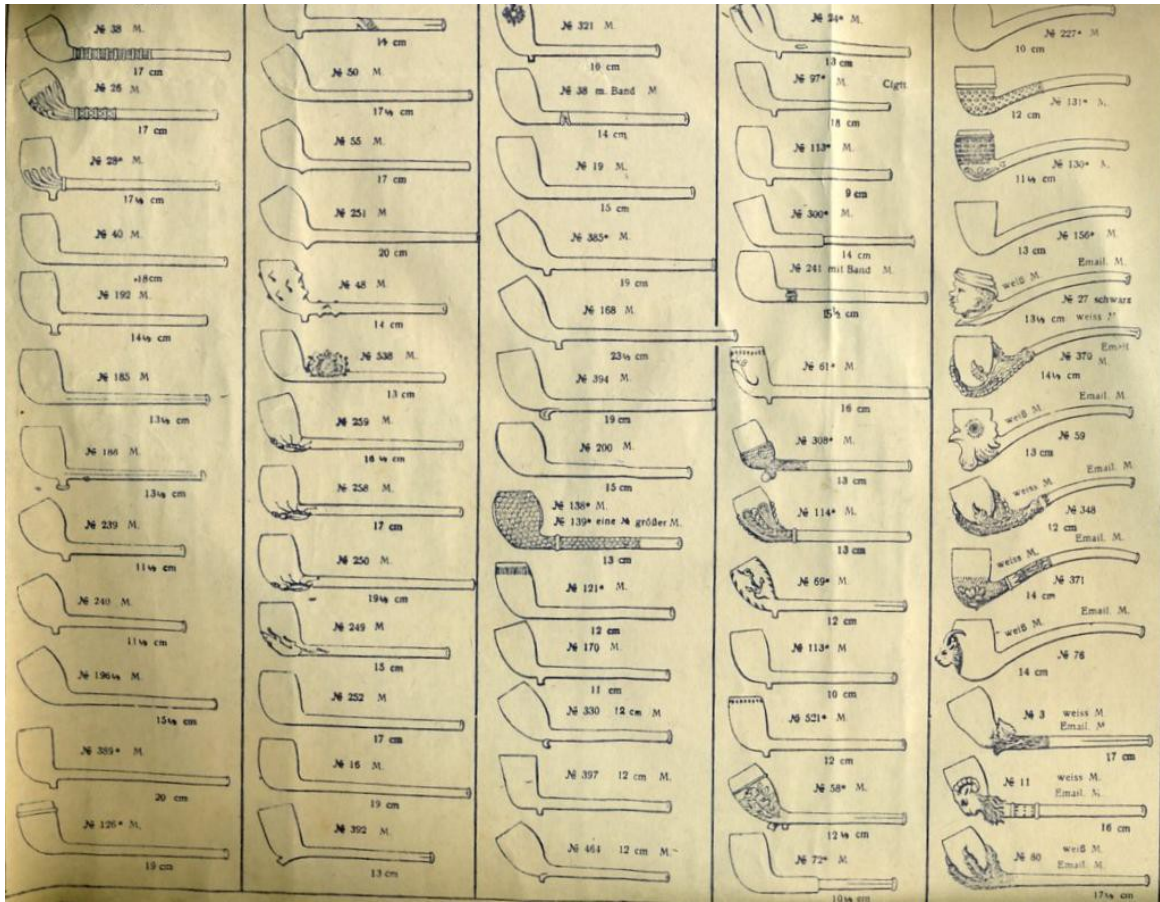 № 38 M.
17 cm
№ 26 M
17 cm
№ 28* M.
17½ cm
№ 40 M.
18cm
№ 192 M.
14½ cm
№ 185 M
13½ cm
№ 186 M.
13½ cm
№ 239 M.
11½ cm
№ 240 M.
11½ cm
№ 196½ M.
15½ cm
№ 389* M.
20 cm
№ 126* M.
19 cm
cm
№ 50 M.
17½ cm
№ 55 M.
17 cm
№ 251 M
20 cm
№ 48 M.
14 cm
№ 538 M.
13 cm
№ 259 M.
16 ½ cm
№ 258 M.
17 cm
№ 250 M.
19½ cm
№ 249 M
15 cm
№ 252 M.
17 cm
№ 16 M.
19 cm
№ 392 M.
13 cm
№ 321 M.
10 cm
№ 38 m. Band M
14 cm
№ 19 M.
15 cm
№ 385* M.
19 cm
№ 168 M
23½ cm
№ 394 M.
19 cm
№ 200 M.
15 cm
№ 138* M.
№ 139* eine № größer M.
13 cm
№ 121* M.
12 cm
№ 170 M.
11 cm
№ 330 12 cm M
№ 397 12 cm M.
№ 464 12 cm M.
№ 24* M.
13 cm
№ 97* M. Cigtt.
18 cm
№ 113* M.
9 cm
№ 300* M.
14 cm
№ 241 mit Band M.
15½ cm
№ 61* M.
16 cm
№ 308* M.
13 cm
№ 114* M.
13 cm
№ 69* M.
12 cm
№ 113* M
10 cm
№ 521* M
12 cm
№ 58* M.
12 ½ cm
№ 72* M
10½ cm
№ 227* M.
10 cm
№ 131* M.
12 cm
№ 130* M.
11½ cm
№ 156* M.
13 cm
Email. M.
weiß M.
№ 27 schwarz
13½ cm weiss M
Email
№ 370 M.
14½ cm
Email. M.
weiß M.
№ 59
13 cm
Email. M.
weiss M.
№ 348
12 cm
Email. M.
weiss M.
№ 371
14 cm
Email. M.
weiß M.
№ 76
14 cm
№ 3 weiss M
Email. M
17 cm
№ 11 weiss M.
Email. M.
16 cm
№ 80 weiß M.
Email. M.
17½ cm